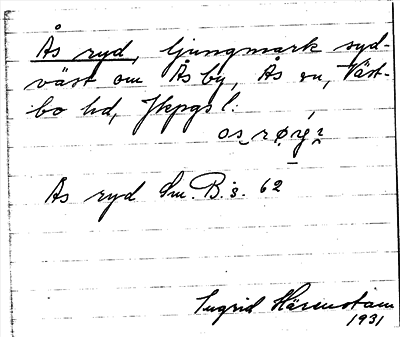 Ås ryd, ljungmark syd-
väst om Ås by, Ås sn, Väst-
bo hd, Jkpgs l.
Ås ryd Sm. B. s. 62
Ingrid Härenstam
1931